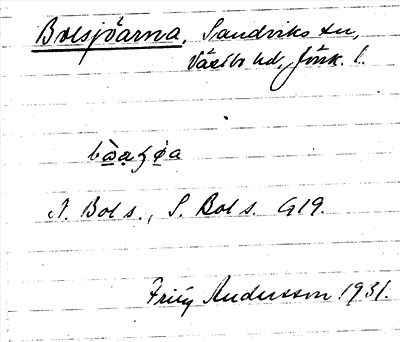 Bolsjöarna, Sandviks sn,
Västbo hd, Jönk. l.
N. Bol s., S. Bol s. G19.
Fritz Andersson 1931.